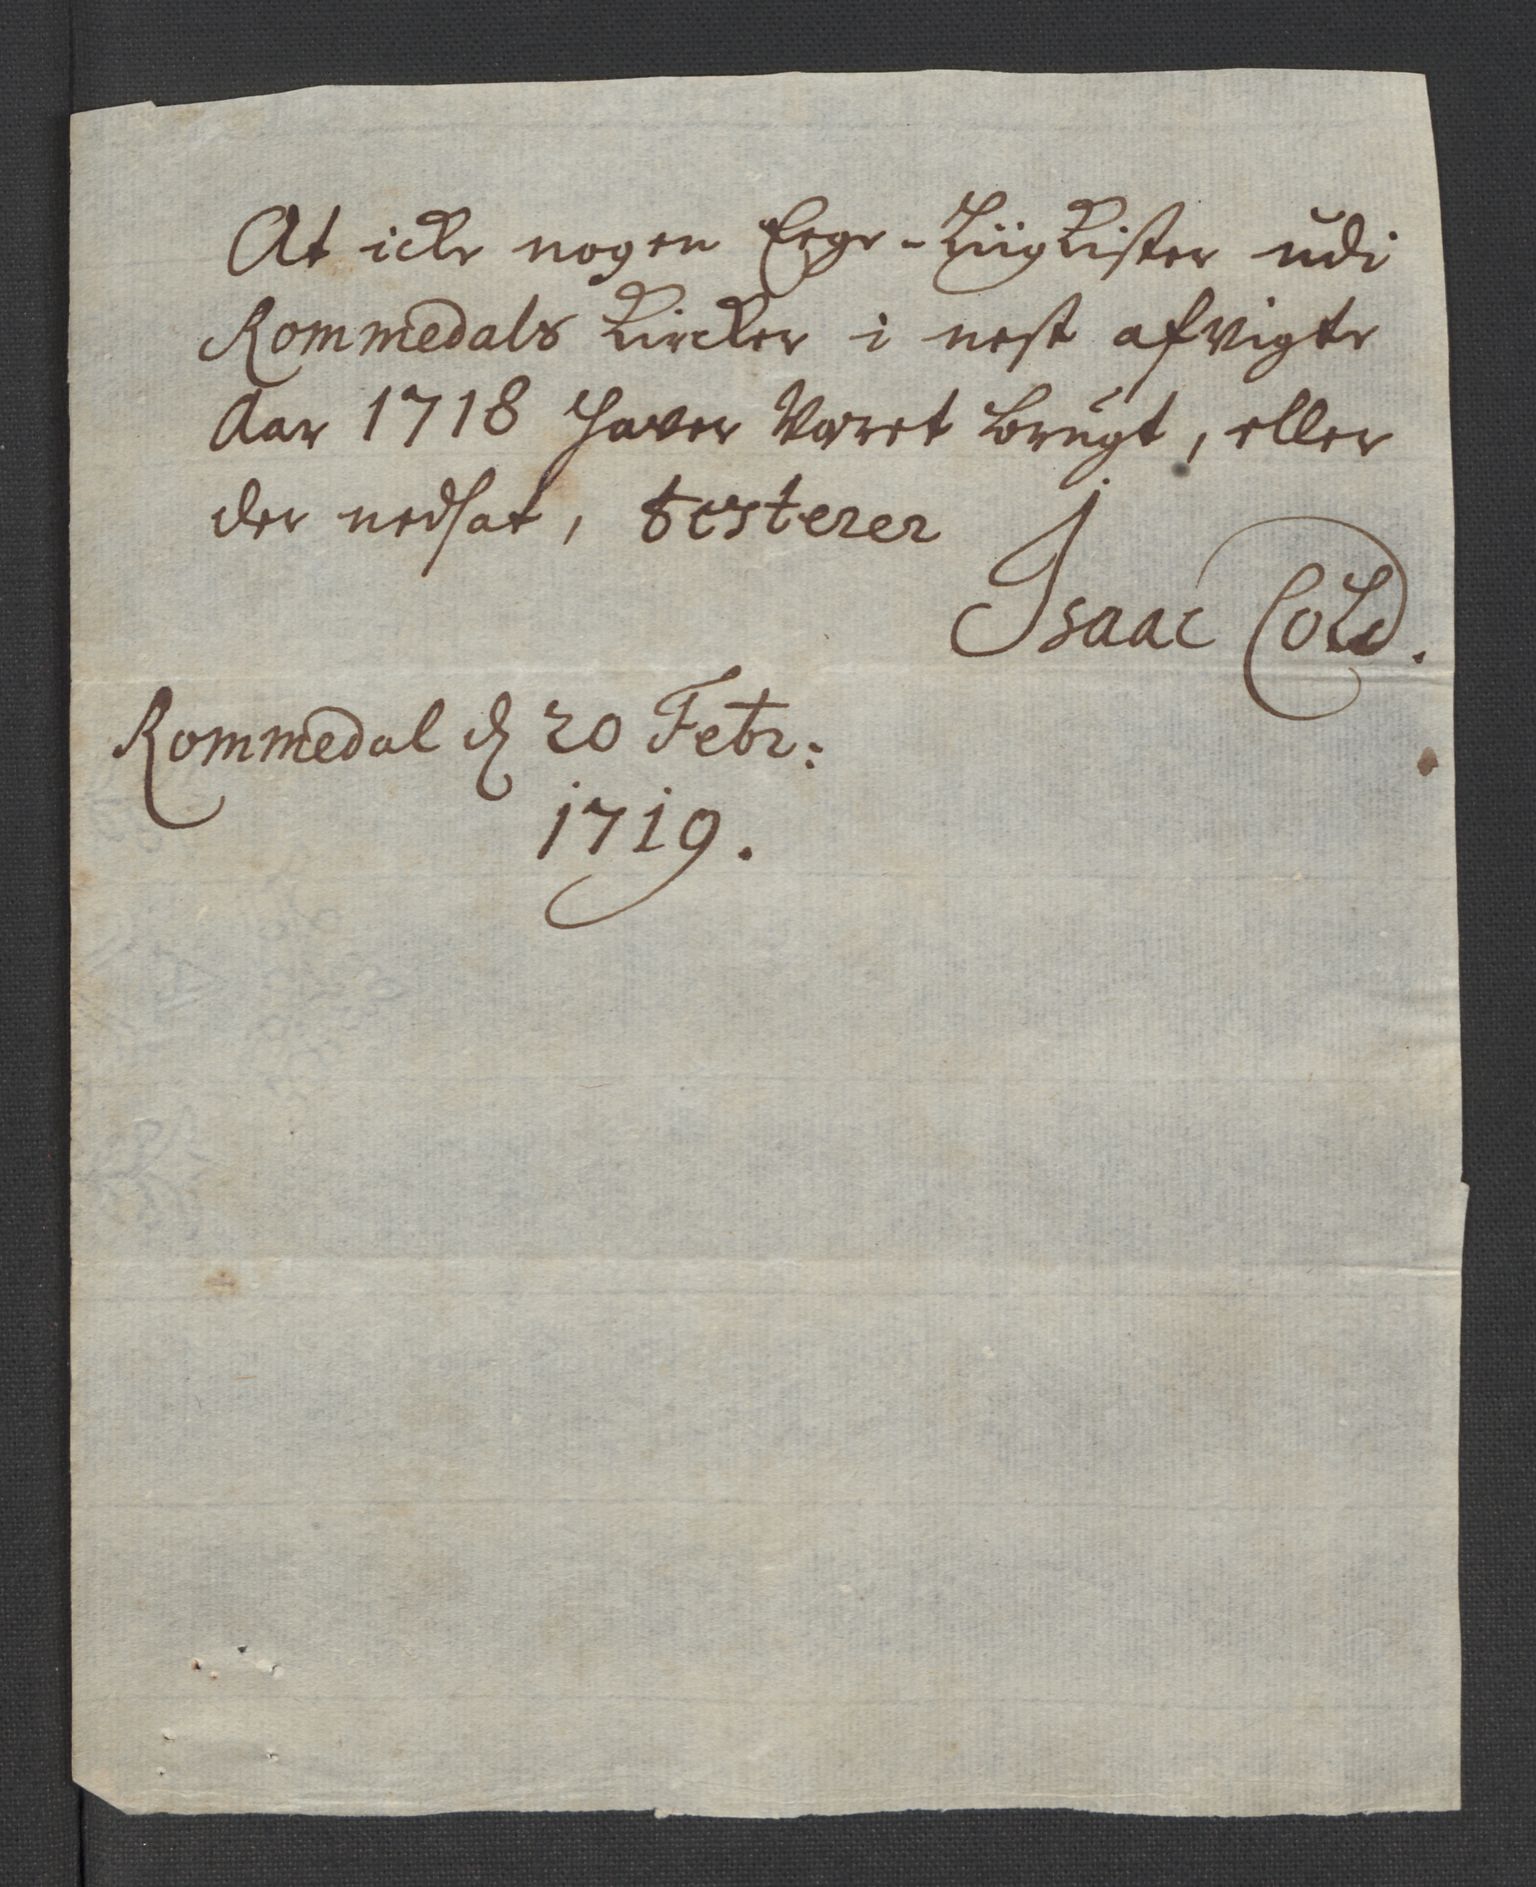 At icke nogen Eege-Liig Kister udi
Rommedals Kircker i nest afvigte
Aar 1718 haver Været brugt, eller
der nedsat, testerer
Isaac Cold.
Rommedal d 20 Febr:
1719.